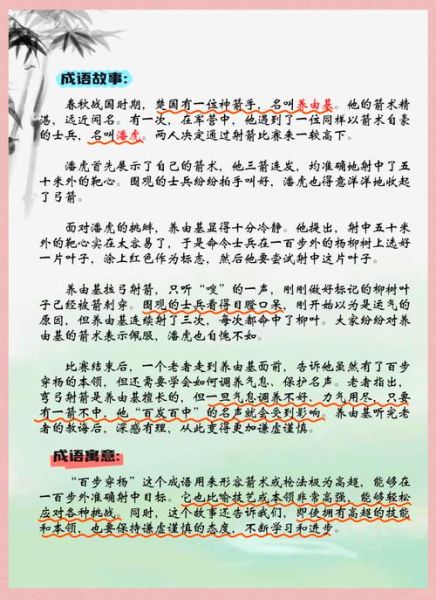 成语故事:
春秋战国时期，楚国有一位神箭手，名叫养由基。他的箭术精
湛，远近闻名。有一次，在军营中，他遇到了一位同样以箭术自豪
的士兵，名叫潘虎。两人决定通过射箭比赛来一较高下。
潘虎首先展示了自己的箭术，他三箭连发，均准确地射中了五
十米外的靶心。围观的士兵纷纷拍手叫好，潘虎也得意洋洋地收起
了弓箭。
面对潘虎的挑衅，养由基显得十分冷静。他提出，射中五十米
外的靶心实在太容易了，于是命令士兵在一百步外的杨柳树上选好
一片叶子，涂上红色作为标志，然后他要尝试射中这片叶子。
养由基拉弓射箭，只听“嗖”的一声，刚刚做好标记的柳树叶
子已经被箭刺穿。围观的士兵看得目瞪口呆，刚开始以为是运气的
原因，但养由基连续射了三次，每次都命中了柳叶。大家纷纷对养
由基的箭术表示佩服，潘虎也自愧不如。
比赛结束后，一个老者走到养由基面前，告诉他虽然有了百步
穿杨的本领，但还需要学会如何调养气息、保护名声。老者指出，
弯弓射箭是养由基擅长的，但一旦气息调养不好、力气用尽，只要
有一箭不中，他“百发百中”的名声就会受到影响。养由基听完老
者的教诲后，深感有理，从此变得更加谦虚谨慎。
成语寓意:
“百步穿杨”这个成语用来形容箭术或枪法极为高超，能够在
一百步外准确射中目标。它也比喻技艺或本领非常高强，能够轻松
应对各种挑战。同时，这个故事还告诉我们，即使拥有高超的技能
和本领，也要保持谦虚谨慎的态度，不断学习和进步。